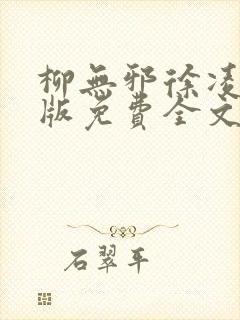 柳無邪徐凌
版免費全文
石翠平